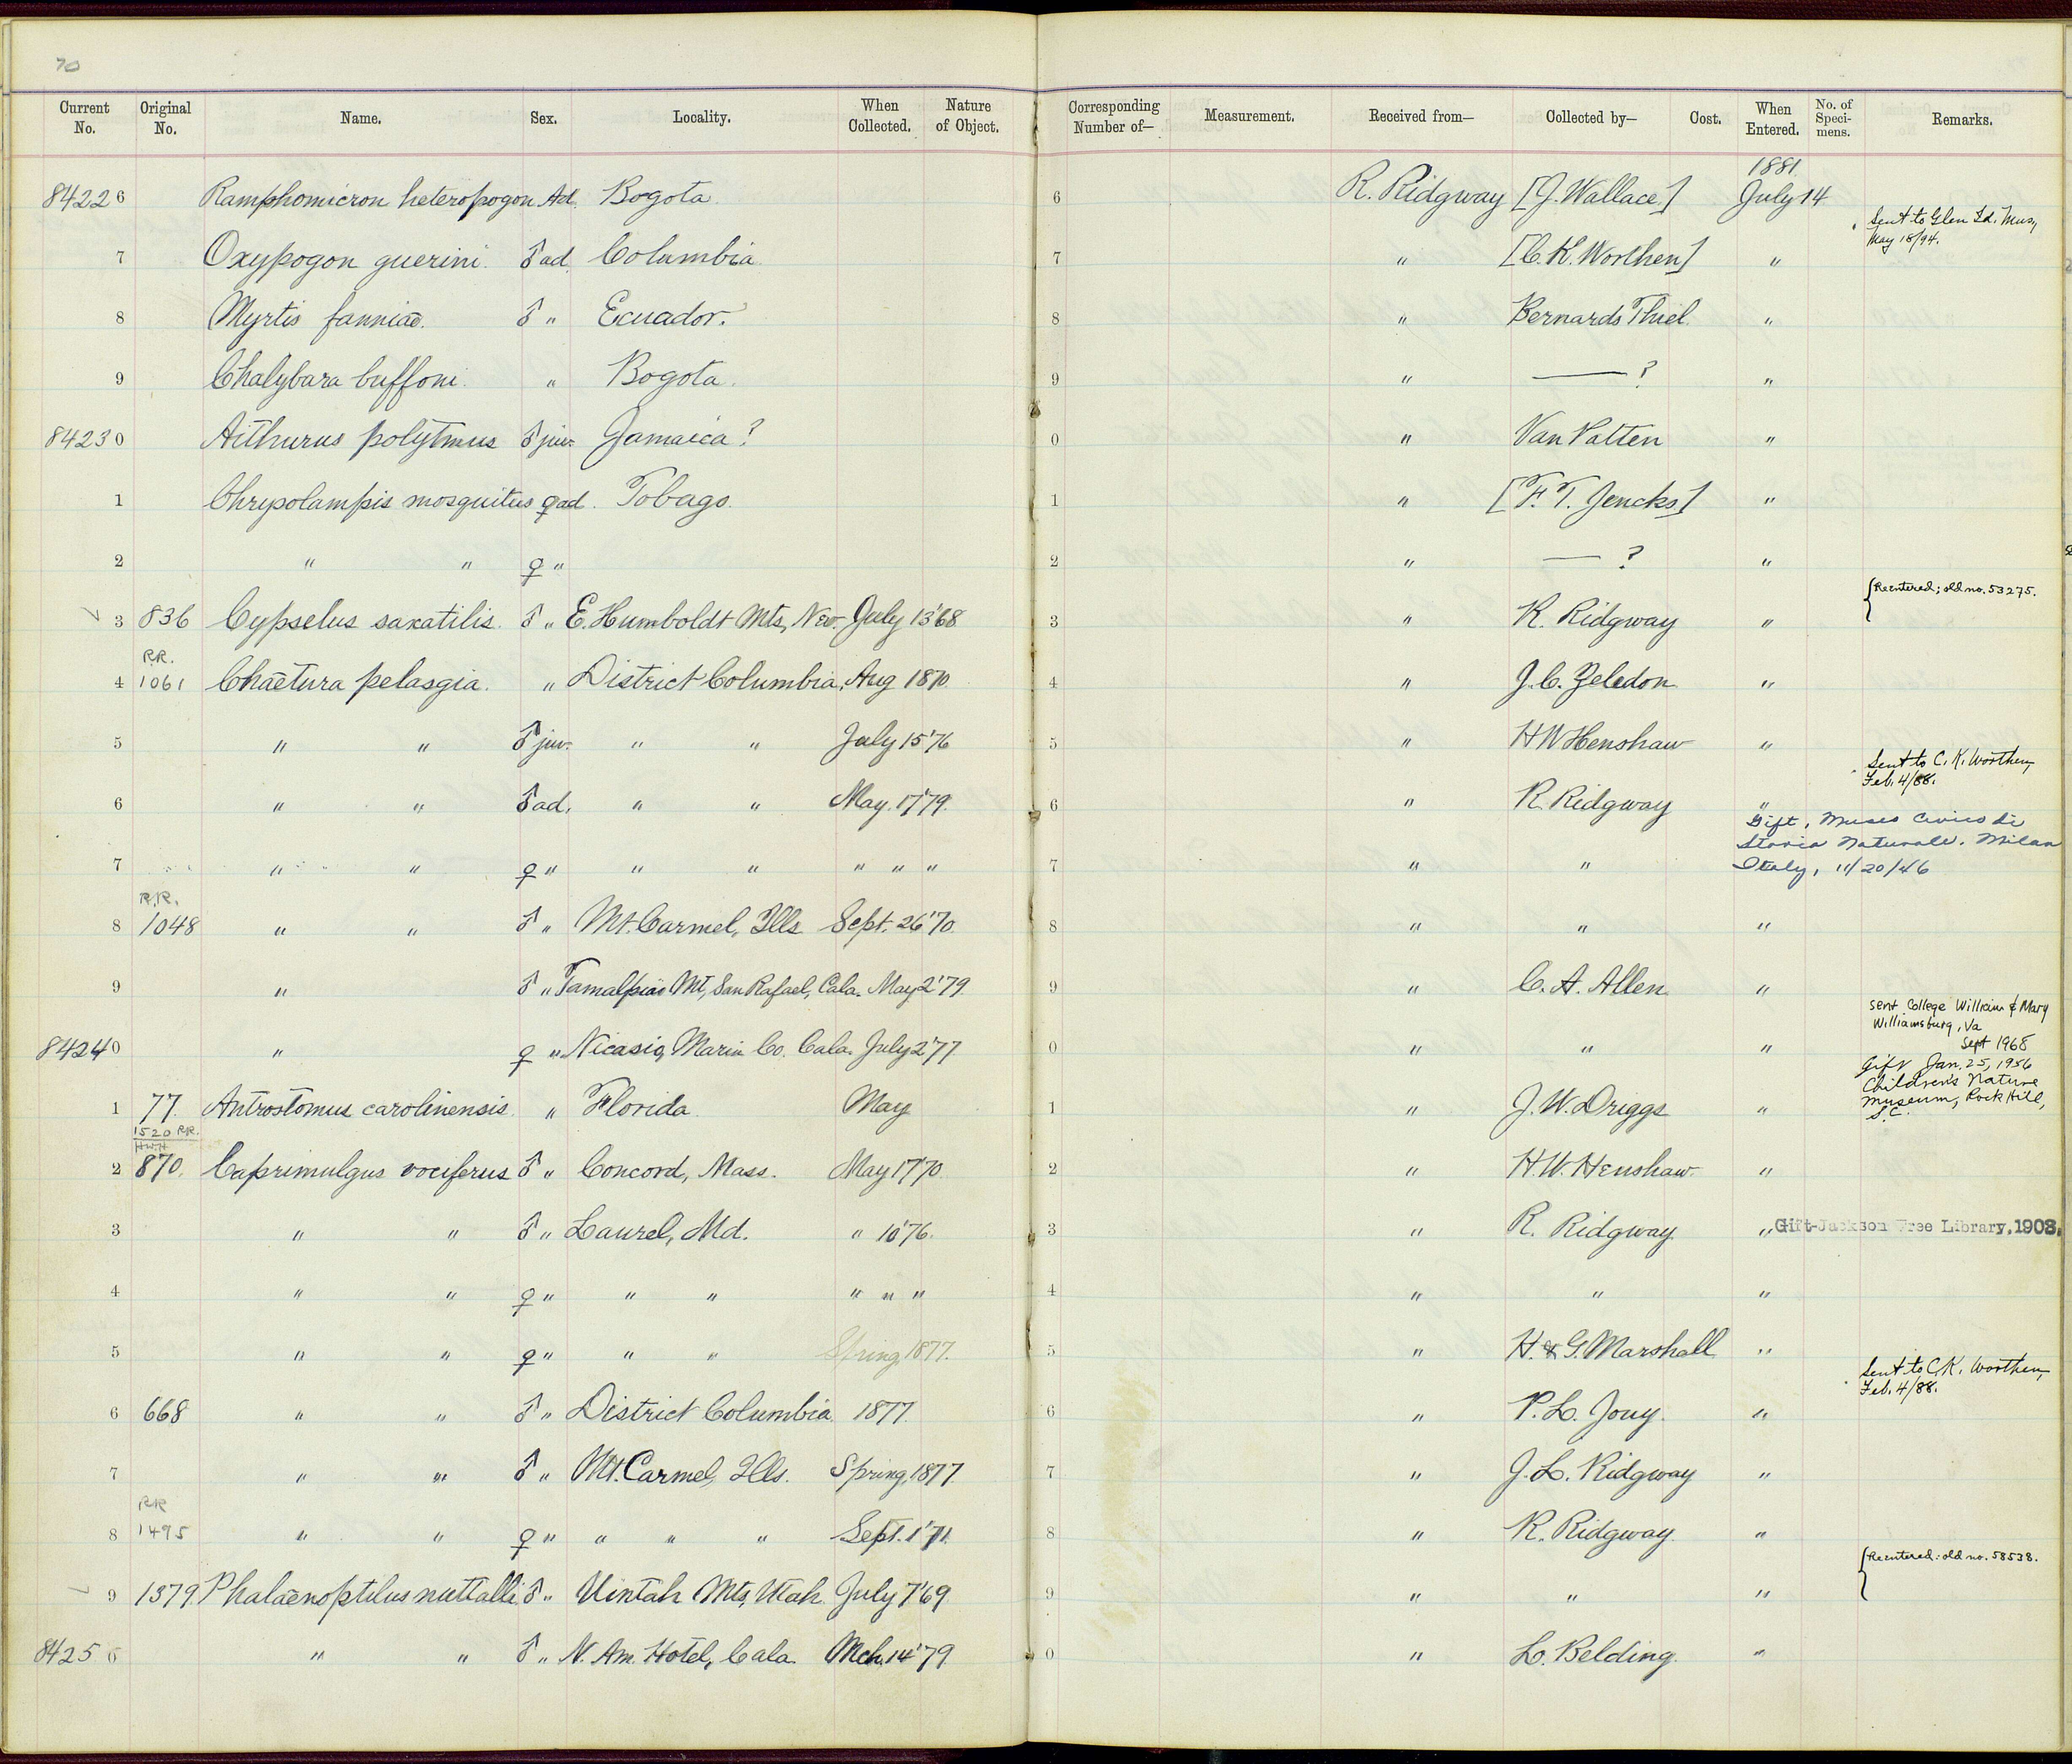 70
Current No. Original No. Name. Sex. Locality. When Collected. Nature of Object. Corresponding Number of— Measurement. Received from— Collected by— Cost. When Entered. No. of Specimens. Remarks.
1881.
84226 Ramphomicron heteropogon Ad. Bogota. 6 R. Ridgway [J. Wallace] July 14
Sent to Glen Id. Mus,
May 18/94.
7 Oxypogon guerini. ♂ ad. Columbia. 7 " [C. K. Worthen] "
8 Myrtis fanniae. ♂ " Ecuador. 8 " Bernards Thiel. "
9 Chalybara buffoni. " Bogota. 9 " — ? "
84230 Aithurus polytmus ♂ juv. Jamaica? 0 " Van Patten "
1 Chrysolampis mosquitus ♀ ad. Tobago. 1 " [F. T. Jencks] "
2 " " ♀ " 2 " — ? "
{Reentered; old no. 53275.
3 836 Cypselus saxatilis. ♂ " E. Humboldt Mts, Nev. July 13 '68 3 " R. Ridgway "
R.R.
4 1061 Chaetura pelasgia. " District Columbia. Aug 1870. 4 " J. C. Zeledon. "
5 " " ♂ juv. " " July 15 '76 5 " H W Henshaw "
Sent to C. K. Worthen,
Feb. 4/88.
6 " " ♂ ad. " " May. 17 '79. 6 " R. Ridgway "
Gift, Museo Civico di
Storia Naturale. Milan
Italy, 11/20/46
7 " " ♀ " " " " " " 7 " "
R.R.
8 1048 " " ♂ " Mt. Carmel, Ills. Sept. 26 '70. 8 " " "
9 " ♂ " Tamalpais Mt, San Rafael, Cala. May 2 '79. 9 " C. A. Allen. "
Sent College William & Mary
Williamsburg, Va
Sept 1968
84240 " ♀ " Nicasio, Marin Co. Cala. July 2 '77 0 " " "
Gift Jan. 25, 1956
Children's Nature
Museum, Rock Hill,
S.C.
1 77. Antrostomus carolinensis. " Florida. May 1 " J. W. Driggs "
1520 R.R.
H.W.H
2 870. Caprimulgus vociferus ♂ " Concord, Mass. May 17 '70. 2 " H. W. Henshaw. "
3 " " ♂ " Laurel, Md. " 10 '76. 3 " R. Ridgway. " Gift-Jackson Free Library, 1903.
4 " " ♀ " " " " " " 4 " " "
5 " " ♀ " " " Spring, 1877. 5 " H. & G. Marshall "
Sent to C.K. Worthen,
Feb. 4/88.
6 668 " " ♂ " District Columbia. 1877. 6 " P. L. Jouy. "
7 " " ♂ " Mt. Carmel, Ills. Spring, 1877. 7 " J. L. Ridgway "
RR
8 1495 " " ♀ " " " " Sept. 1 '71. 8 " R. Ridgway. "
{Reentered: old no. 58538.
9 1379. Phalaenoptilus nuttalli ♂ " Uintah Mts, Utah. July 7 '69. 9 " " "
84250 " " ♂ " N. Am. Hotel, Cala. Mch. 14 '79 0 " L. Belding. "